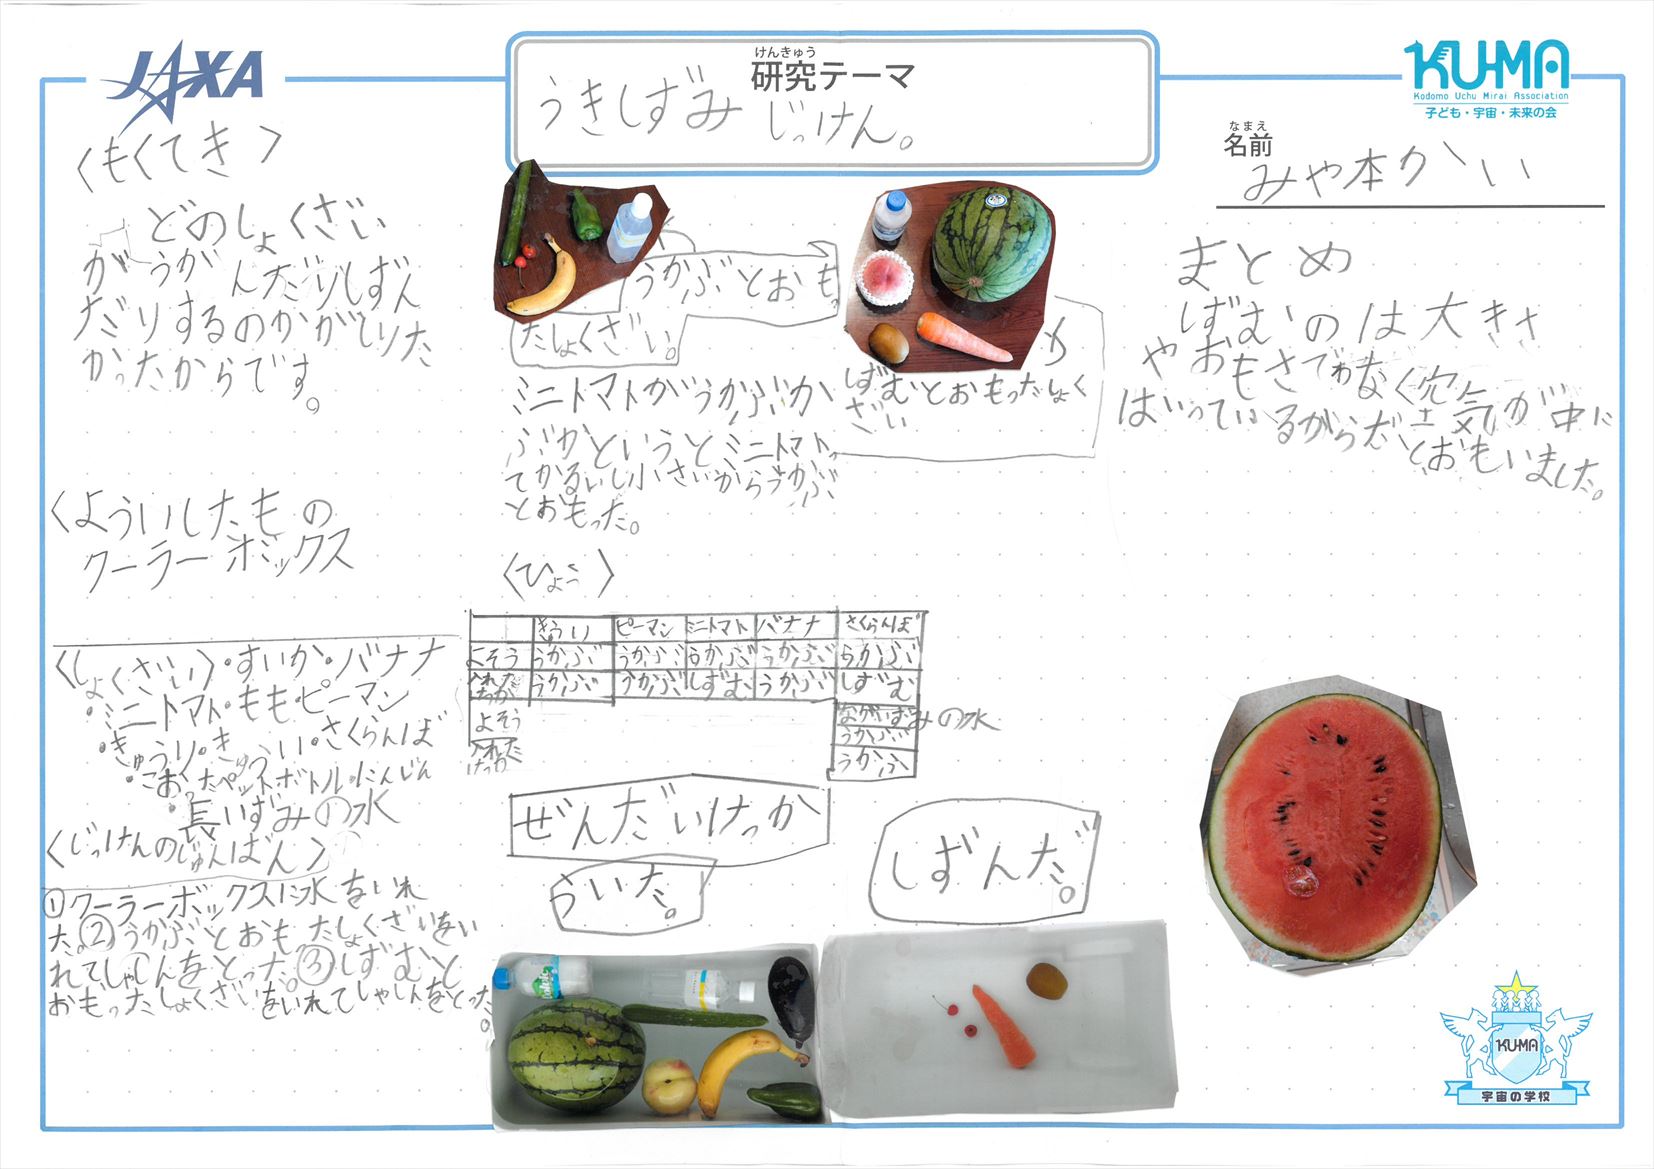 JAXA
けんきゅう
研究テーマ
うきしずみ じっけん。
KU-MA
Kodomo Uchu Mirai Association
子ども・宇宙・未来の会
なまえ
名前
みや本かい
〈もくてき〉
どのしょくざい
がうかんだりしずん
だりするのかがしりた
かったからです。
〈よういしたもの
クーラーボックス
〈しょくざい〉・すいか・バナナ
・ミニトマト・もも・ピーマン
・きゅうり・きゅうい・さくらんぼ
・こおったペットボトル・にんじん
・長いずみの水
〈じっけんのじゅんばん〉
①クーラーボックスに水をいれ
た。②うかぶとおもたしょくざいをい
れてしゃしんをとった。③しずむと
おもったしょくざいをいれてしゃしんをとった。
うかぶとおもっ
たしょくざい。
ミニトマトがうかぶか
ぶかというとミニトマトっ
てかるいし小さいからうかぶ
とおもった。
しずむとおもったしょく
ざい
〈ひょう〉
きゅうい ピーマン ミニトマト バナナ さくらんぼ
よそう うかぶ うかぶ うかぶ うかぶ うかぶ
入れたけっか うかぶ うかぶ しずむ うかぶ しずむ
ながいずみの水
よそう うかぶ
入れたけっか うかぶ
ぜんだいけっか
ういた。
しずんだ。
まとめ
しずむのは大きさ
やおもさでわなく空気が中に
はいっているからだとおもいました。
KU-MA
宇宙の学校